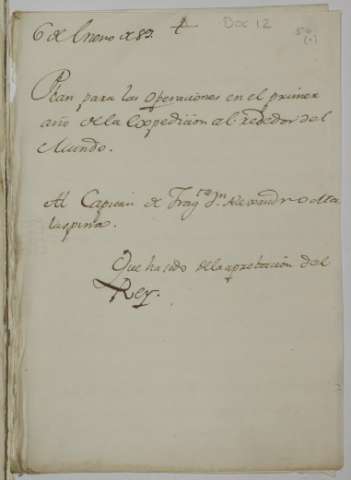 6 de Enero de 89.
Doc 12
Plan para las Operaciones en el primer
año de la Expedicion al rededor del
Mundo.
Al Capitan de Frag.ta D.n Alexandro Ma
laspina.
Que ha sido de la aprobacion del
Rey.